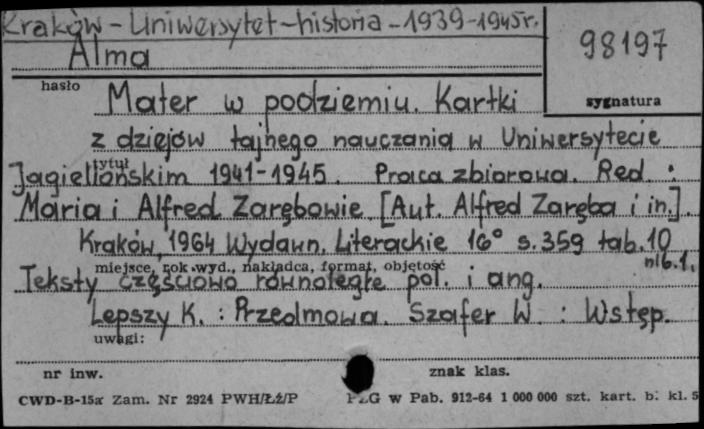 Kraków - Uniwersytet - historia - 1939-1945r.
98197
Alma
hasło
sygnatura
Mater w podziemiu. Kartki
z dziejów tajnego nauczania w Uniwersytecie
tytuł
Jagiellońskim 1941-1945. Praca zbiorowa. Red.:
Maria i Alfred Zarębowie. [Aut. Alfred Zaręba i in.].
Kraków, 1964 Wydawn. Literackie 16° s. 359 tab. 10
nlb. 1.
miejsce, rok wyd., nakładca, format, objętość
Teksty częściowo równoległe pol. i ang.
Lepszy K. : Przedmowa. Szafer W. : Wstęp.
uwagi:
nr inw.
znak klas.
CWD-B-15a Zam. Nr 2924 PWH/Łź/P
w Pab. 912-64 1 000 000 szt. kart. b. kl. 5